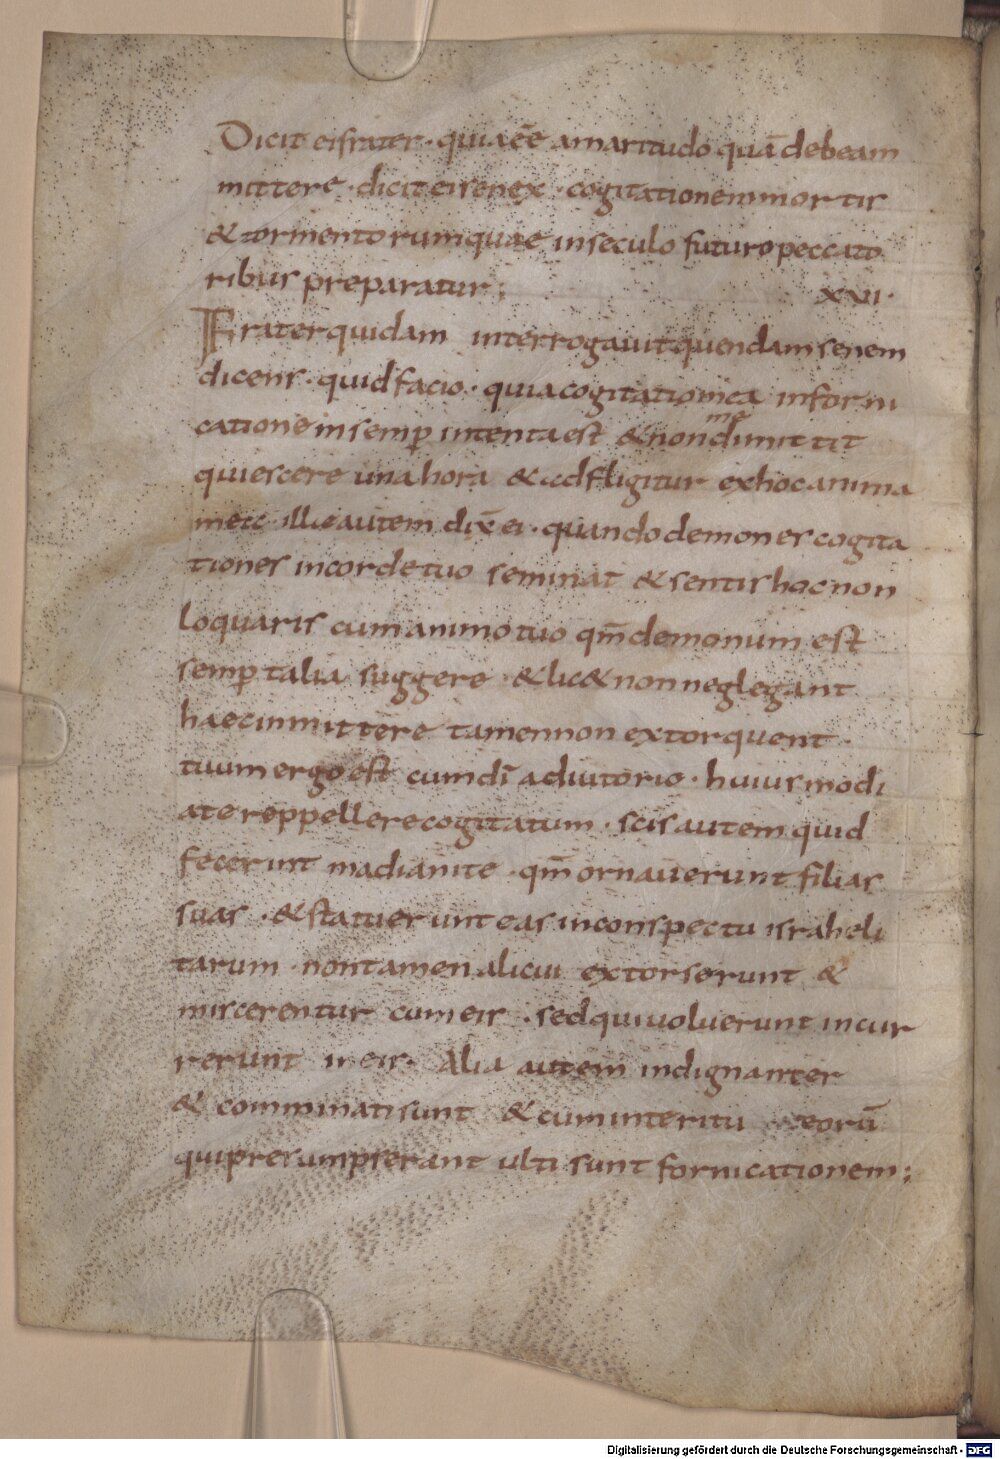 Dicit ei frater · quiaeē amaritudo quā debeam
mittere · dicit ei senex · cogitationem mortis
& tormentorum quae in seculo futuro peccato
ribus preparatur ;
xxvi ·
Frater quidam interrogauit quendam senem
dicens · quid facio · quia cogitatio mea in forni
catione in semp̄ intenta est & non me dimittit
quiescere una hora & adfligitur ex hoc anima
mea · ille autem dix̄ ei · quando demones cogita
tiones in corde tuo seminat & sentis hac non
loquaris cum animo tuo qm̄ demonum est
semp̄ talia suggere · & lic& non neglegant
haec inmittere tamen non extorquent ·
tuum ergo est cum dī adiutorio · huiusmodi
a te reppellere cogitatum · scis autem quid
fecerunt madianite · qm̄ ornauerunt filias
suas · & statuerunt eas in conspectu israheli
tarum · non tamen alicui extorserunt &
miscerentur cum eis · sed qui uoluerunt incur
rerunt in eis · Alia autem indignanter
& comminati sunt & cum interitu eorū
qui presumpserant ulti sunt fornicationem ;
Digitalisierung gefördert durch die Deutsche Forschungsgemeinschaft - DFG